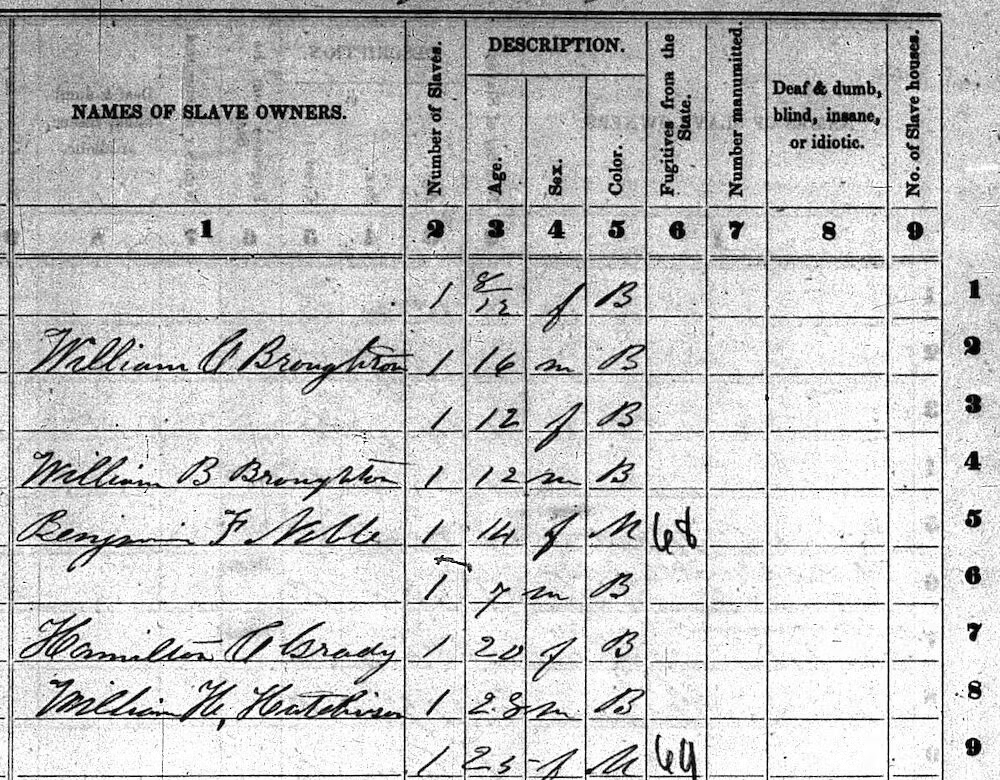 NAMES OF SLAVE OWNERS. Number of Slaves. DESCRIPTION. Fugitives from the State. Number manumitted. Deaf & dumb, blind, insane, or idiotic. No. of Slave houses.
Age. Sex. Color.
1 2 3 4 5 6 7 8 9
1 8/12 f B 1
William A Broughton 1 16 m B 2
1 12 f B 3
William B Broughton 1 12 m B 4
Benjamin F Noble 1 14 f M 68 5
1 7 m B 6
Hamilton A Grady 1 20 f B 7
William H, Hutchison 1 28 m B 8
1 25 f M 69 9